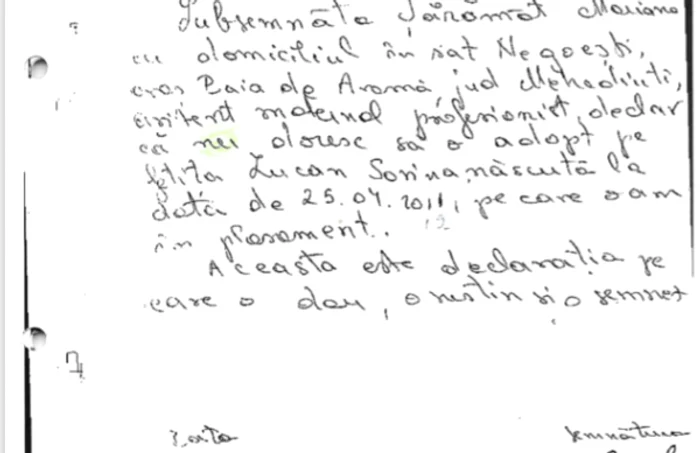 Subsemnata Sărămăt Mariana
cu domiciliul în sat Negoești,
oraș Baia de Aramă, jud Mehedinți,
asistent maternal profesionist, declar
că nu doresc să o adopt pe
fetița Lucan Sorina, născută la
data de 25.04.2011, pe care o am
în plasament.
Aceasta este declarația pe
care o dau, o susțin și o semnez
Data semnătura